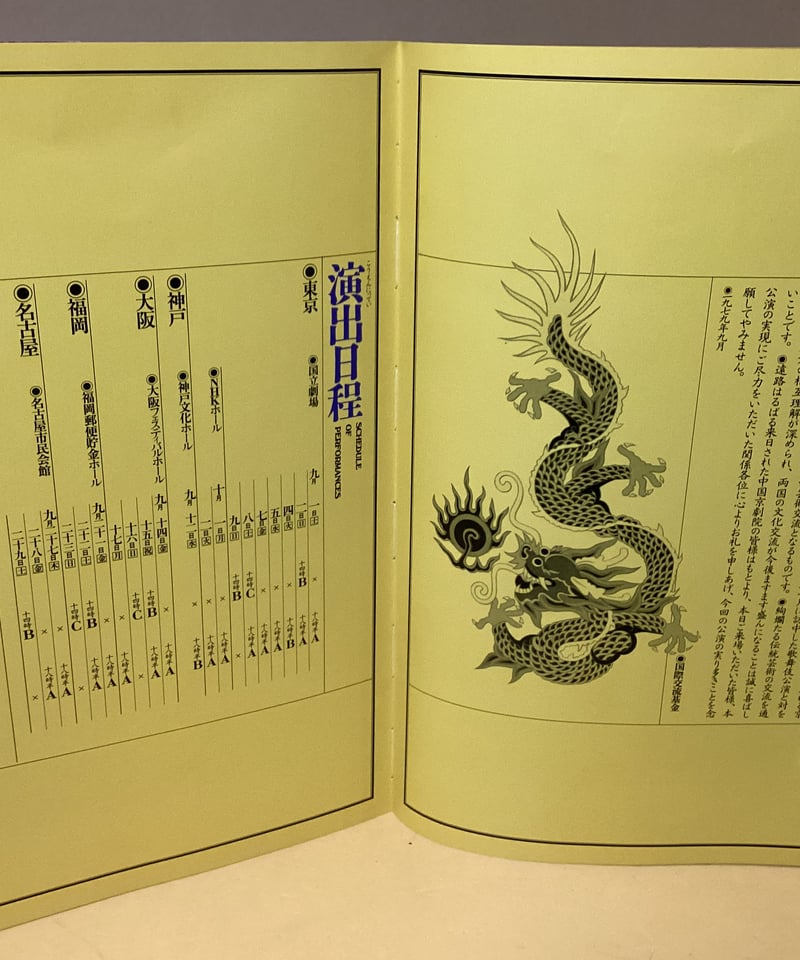 月に訪中した歌舞伎公演と対を
芸術交流となるものです。●絢爛たる伝統芸術の交流を通
の相互理解が深められ、両国の文化交流が今後ますます盛んになることは誠に喜ばし
いことです。●遠路はるばる来日された中国京劇院の皆様はもとより、本日ご来場いただいた皆様、本
公演の実現にご尽力をいただいた関係各位に心よりお礼を申しあげ、今回の公演の実り多きことを念
願してやみません。
●一九七九年九月
●国際交流基金
こうえんにってい
演出日程
SCHEDULE
OF
PERFORMANCES
●東京
●国立劇場
九月 一日土 × 十八時半A
二日日 十四時B 十八時半A
四日火 × 十八時半B
五日水 × 十八時半A
七日金 × 十八時半A
八日土 十四時C 十八時半A
九日日 十四時B ×
●NHKホール
十月 一日月 × 十八時半A
二日火 × 十八時半A
●神戸
●神戸文化ホール
九月 十二日水 × 十八時半B
●大阪
●大阪フェスティバルホール
九月 十四日金 × 十八時半A
十五日祝 十四時B
十六日日 十四時C
十七日月 × 十八時半A
●福岡
●福岡郵便貯金ホール
九月 二十一日金 × 十八時半A
二十二日土 十四時B
二十三日日 十四時C
●名古屋
●名古屋市民会館
九月 二十七日木 × 十八時半A
二十八日金 × 十八時半A
二十九日土 十四時B ×